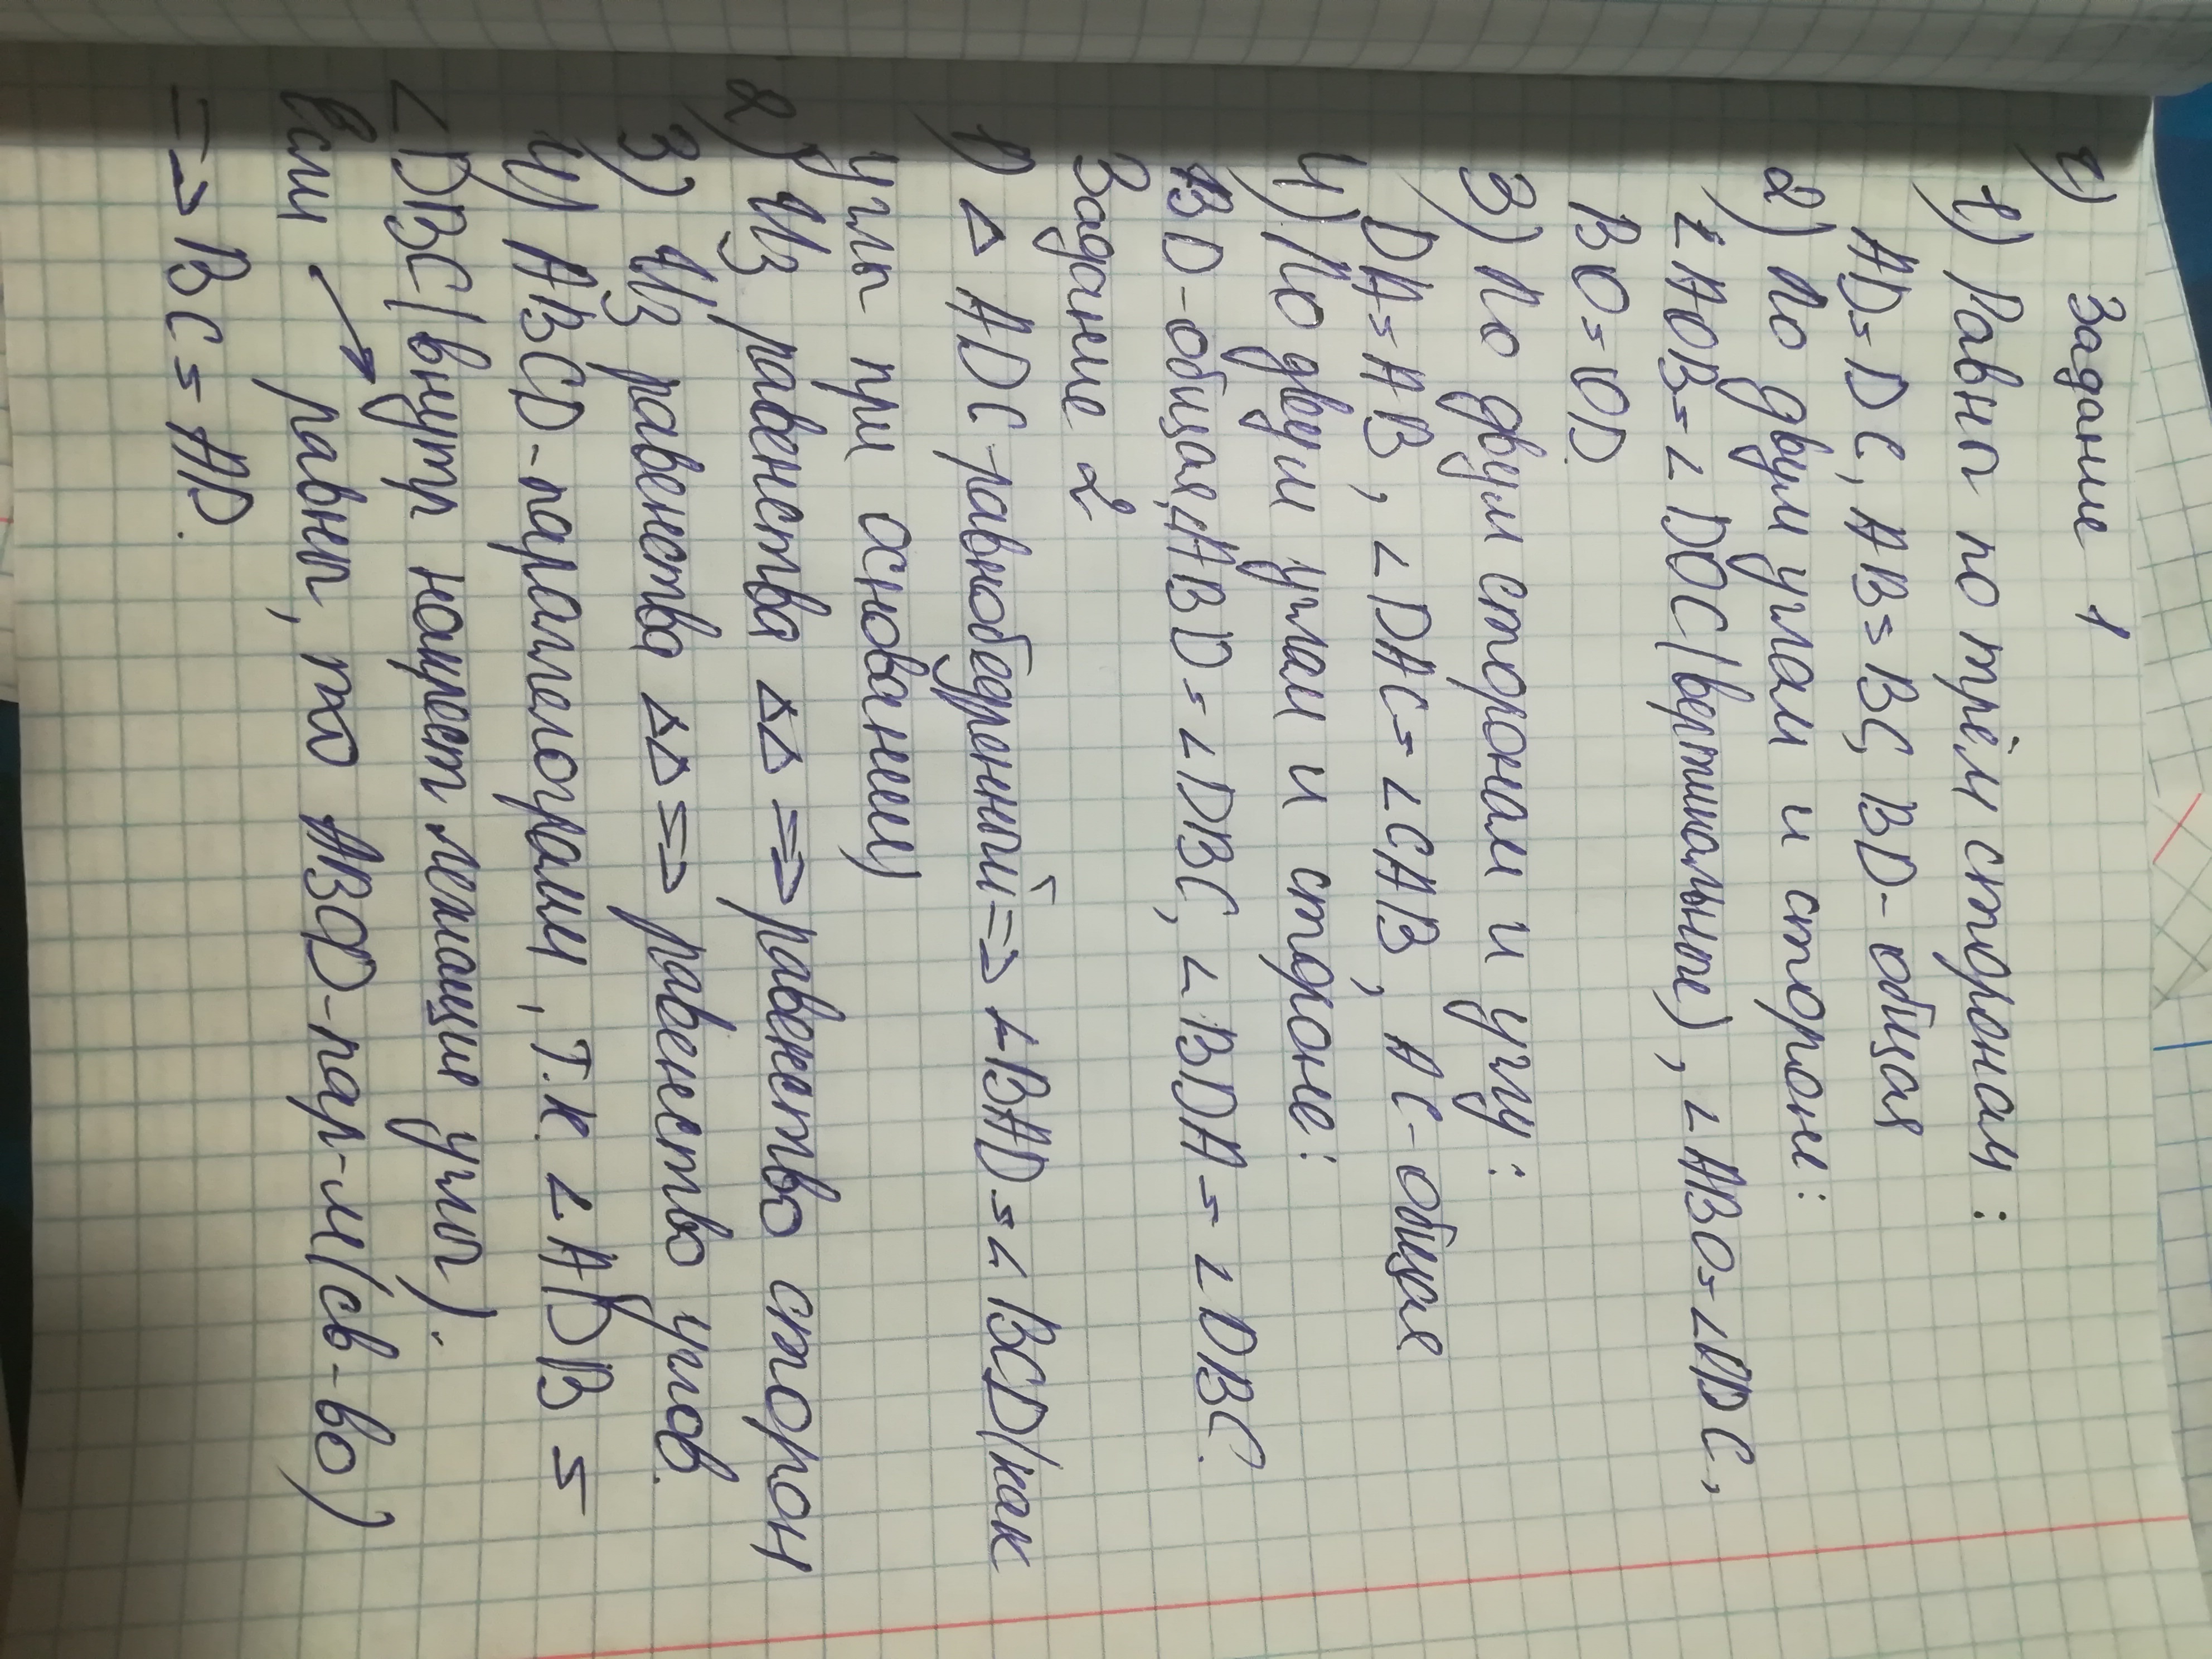 Задание 1
1) Равны по трём сторонам:
AD = DC, AB = BC, BD - общая
2) По двум углам и стороне:
∠AOB = ∠DOC (вертикальные), ∠ABO = ∠ODC,
BO = OD.
3) По двум сторонам и углу:
DA = AB, ∠DAC = ∠CAB, AC - общая
4) По двум углам и стороне:
BD - общая, ∠ABD = ∠DBC, ∠BDA = ∠DBC.
Задание 2
1) △ADC - равнобедренный => ∠BAD = ∠BCD (как
углы при основании)
2) Из равенства △△ => равенство сторон
3) Из равенства △△ => равенство углов.
4) ABCD - параллелограмм, т.к. ∠ADB =
∠DBC (внутр накрест лежащие углы).
Если ↗ равны, то ABCD - пар-м (св-во)
=> BC = AD.